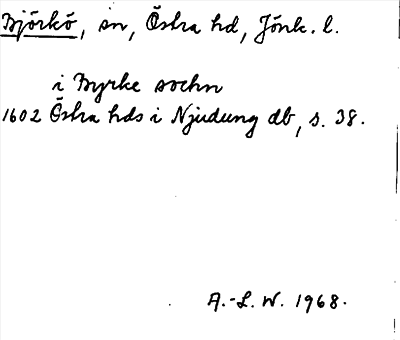 Björkö, sn, Östra hd, Jönk. l.
i Byrke sochn
1602 Östra hds i Njudung db, s. 38.
A.-L. W. 1968.